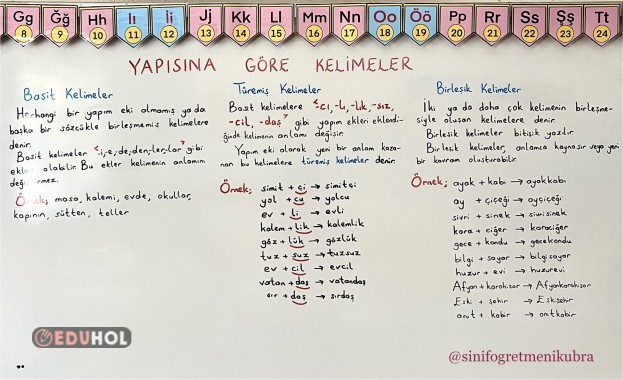 Gg Ğğ Hh Iı İi Jj Kk Ll Mm Nn Oo Öö Pp Rr Ss Şş Tt
8 9 10 11 12 13 14 15 16 17 18 19 20 21 22 23 24
YAPISINA GÖRE KELİMELER
Basit Kelimeler
Herhangi bir yapım eki almamış ya da
başka bir sözcükle birleşmemiş kelimelere
denir.
Basit kelimeler "-i,-e,-de,-den,-ler,-lar" gibi
ekler alabilir. Bu ekler kelimenin anlamını
değiştirmez.
Örnek; masa, kalemi, evde, okullar,
kapının, sütten, teller
Türemiş Kelimeler
Basit kelimelere "-cı, -lı, -lık, -sız,
-cil, -daş" gibi yapım ekleri eklendi-
ğinde kelimenin anlamı değişir.
Yapım eki alarak yeni bir anlam kaza-
nan bu kelimelere türemiş kelimeler denir.
Örnek; simit + çi → simitçi
yol + cu → yolcu
ev + li → evli
kalem + lik → kalemlik
göz + lük → gözlük
tuz + suz → tuzsuz
ev + cil → evcil
vatan + daş → vatandaş
sır + daş → sırdaş
Birleşik Kelimeler
İki ya da daha çok kelimenin birleşme-
siyle oluşan kelimelere denir.
Birleşik kelimeler bitişik yazılır.
Birleşik kelimeler, anlamca kaynaşır veya yeni
bir kavram oluşturabilir.
Örnek; ayak + kabı → ayakkabı
ay + çiçeği → ayçiçeği
sivri + sinek → sivrisinek
kara + ciğer → karaciğer
gece + kondu → gecekondu
bilgi + sayar → bilgisayar
huzur + evi → huzurevi
Afyon + karahisar → Afyonkarahisar
Eski + şehir → Eskişehir
anıt + kabir → anıtkabir
EDUHOL
@sinifogretmenikubra